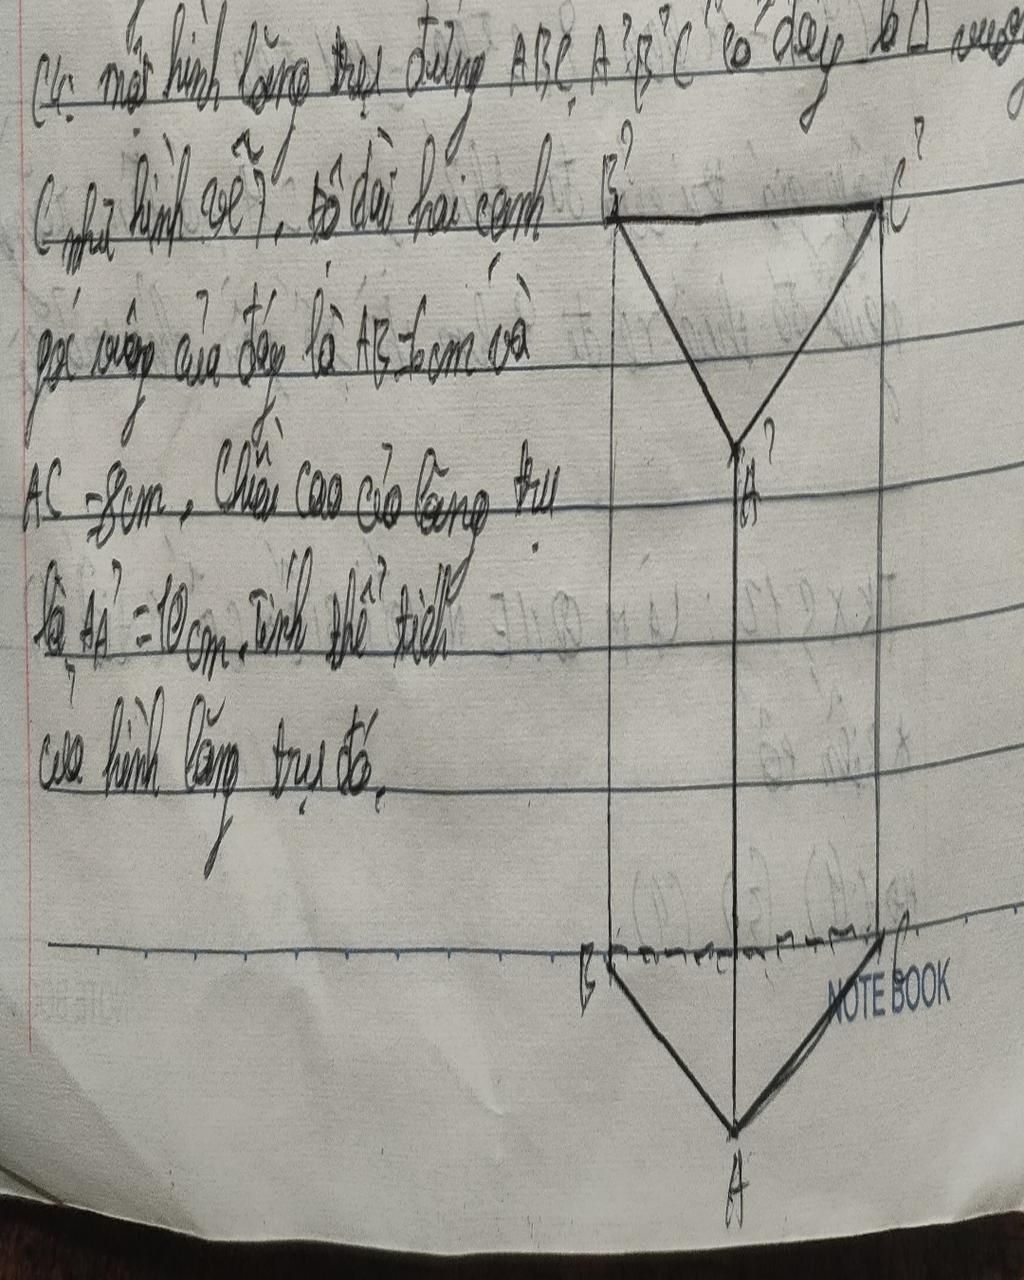 C4: một hình lăng trụ đứng ABC A'B'C' có đáy là Δ vuông
C như hình vẽ?. Độ dài hai cạnh
góc vuông của đáy là AB=6cm và
AC =8cm, Chiều cao của lăng trụ
là AA' = 10cm. Tính thể tích
của hình lăng trụ đó.
B' C'
A'
B C
NOTE BOOK
A